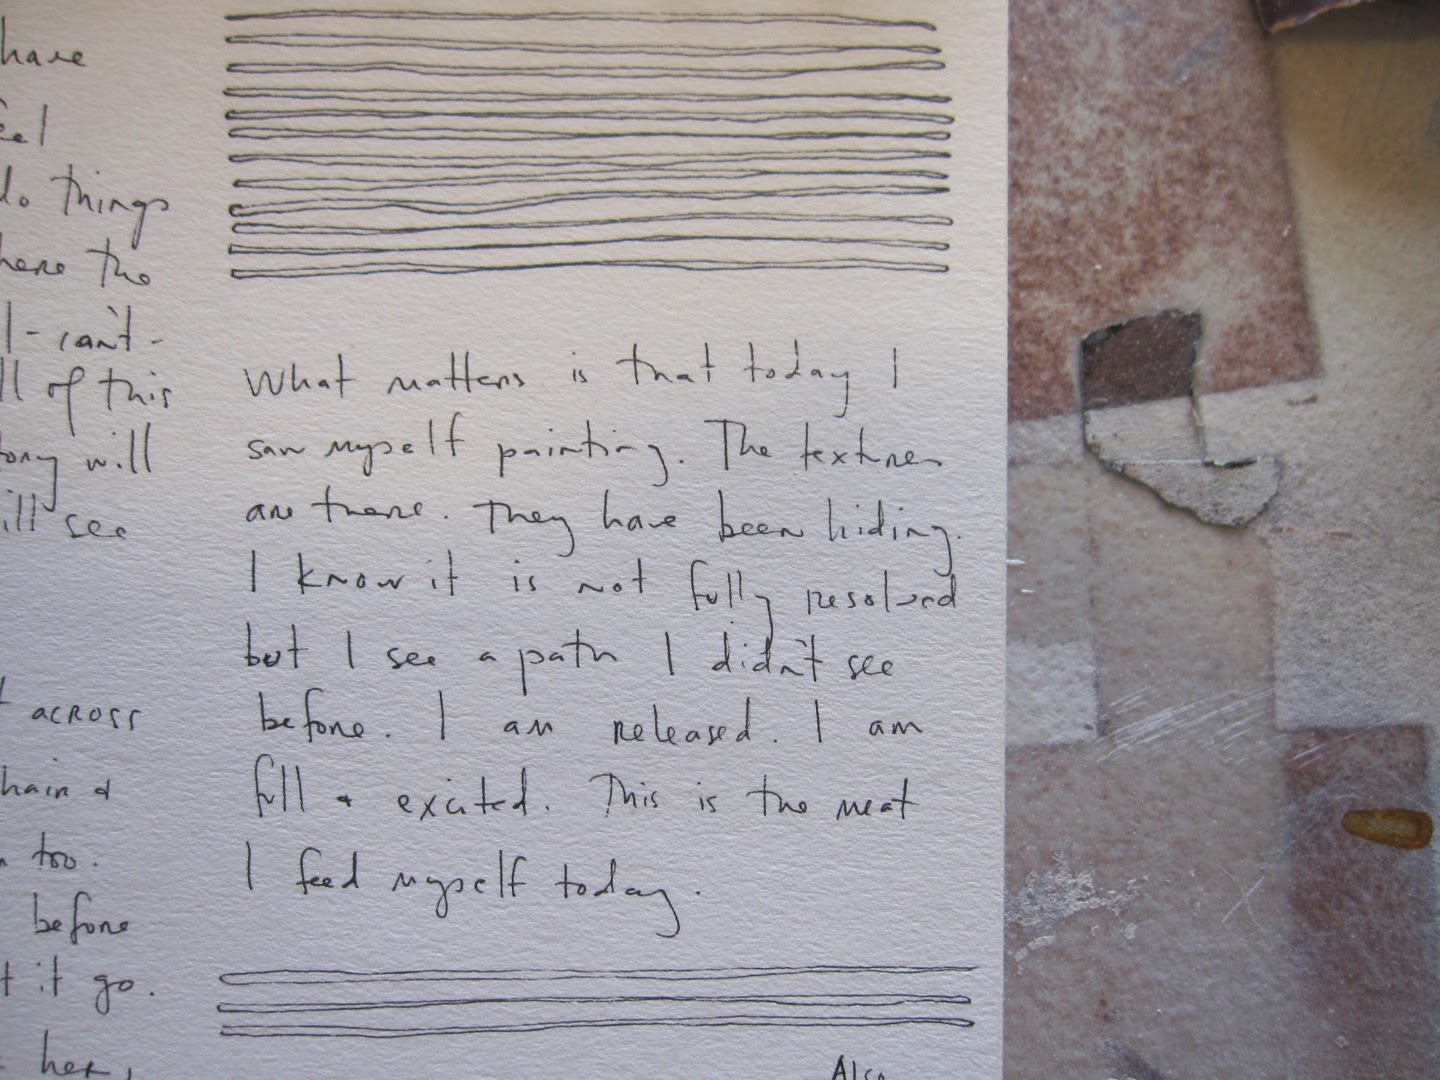 have
do things
the
I-can't-
all of this
will
will see
across
&
too.
before
it go.
her,
What matters is that today I
saw myself painting. The textures
are there. They have been hiding.
I know it is not fully resolved
but I see a path I didn't see
before. I am released. I am
full & excited. This is the meat
I feed myself today.
Also